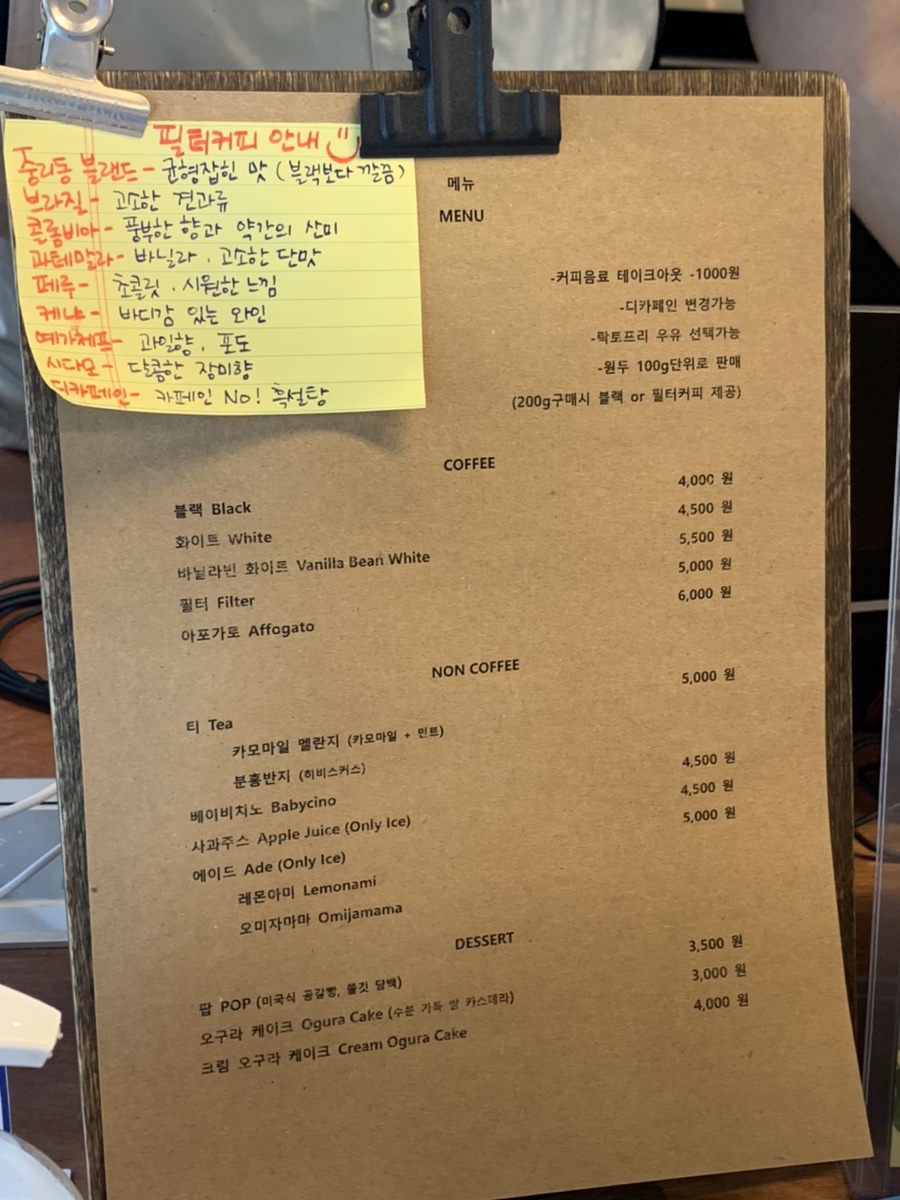 필터커피 안내
중리동 블랜드 - 균형잡힌 맛 (블랙보다 깔끔)
브라질 - 고소한 견과류
콜롬비아 - 풍부한 향과 약간의 산미
과테말라 - 바닐라, 고소한 단맛
페루 - 초콜릿, 시원한 느낌
케냐 - 바디감 있는 와인
예가체프 - 과일향, 포도
시다모 - 달콤한 장미향
디카페인 - 카페인 No! 흑설탕
메뉴
MENU
-커피음료 테이크아웃 -1000원
-디카페인 변경가능
-락토프리 우유 선택가능
-원두 100g단위로 판매
(200g구매시 블랙 or 필터커피 제공)
COFFEE
블랙 Black 4,000 원
화이트 White 4,500 원
바닐라빈 화이트 Vanilla Bean White 5,500 원
필터 Filter 5,000 원
아포가토 Affogato 6,000 원
NON COFFEE
티 Tea 5,000 원
카모마일 멜란지 (카모마일 + 민트)
분홍반지 (히비스커스)
베이비치노 Babycino 4,500 원
사과주스 Apple Juice (Only Ice) 4,500 원
에이드 Ade (Only Ice) 5,000 원
레몬아미 Lemonami
오미자마마 Omijamama
DESSERT
팝 POP (미국식 공갈빵, 쫄깃 담백) 3,500 원
오구라 케이크 Ogura Cake (수분 가득 쌀 카스테라) 3,000 원
크림 오구라 케이크 Cream Ogura Cake 4,000 원